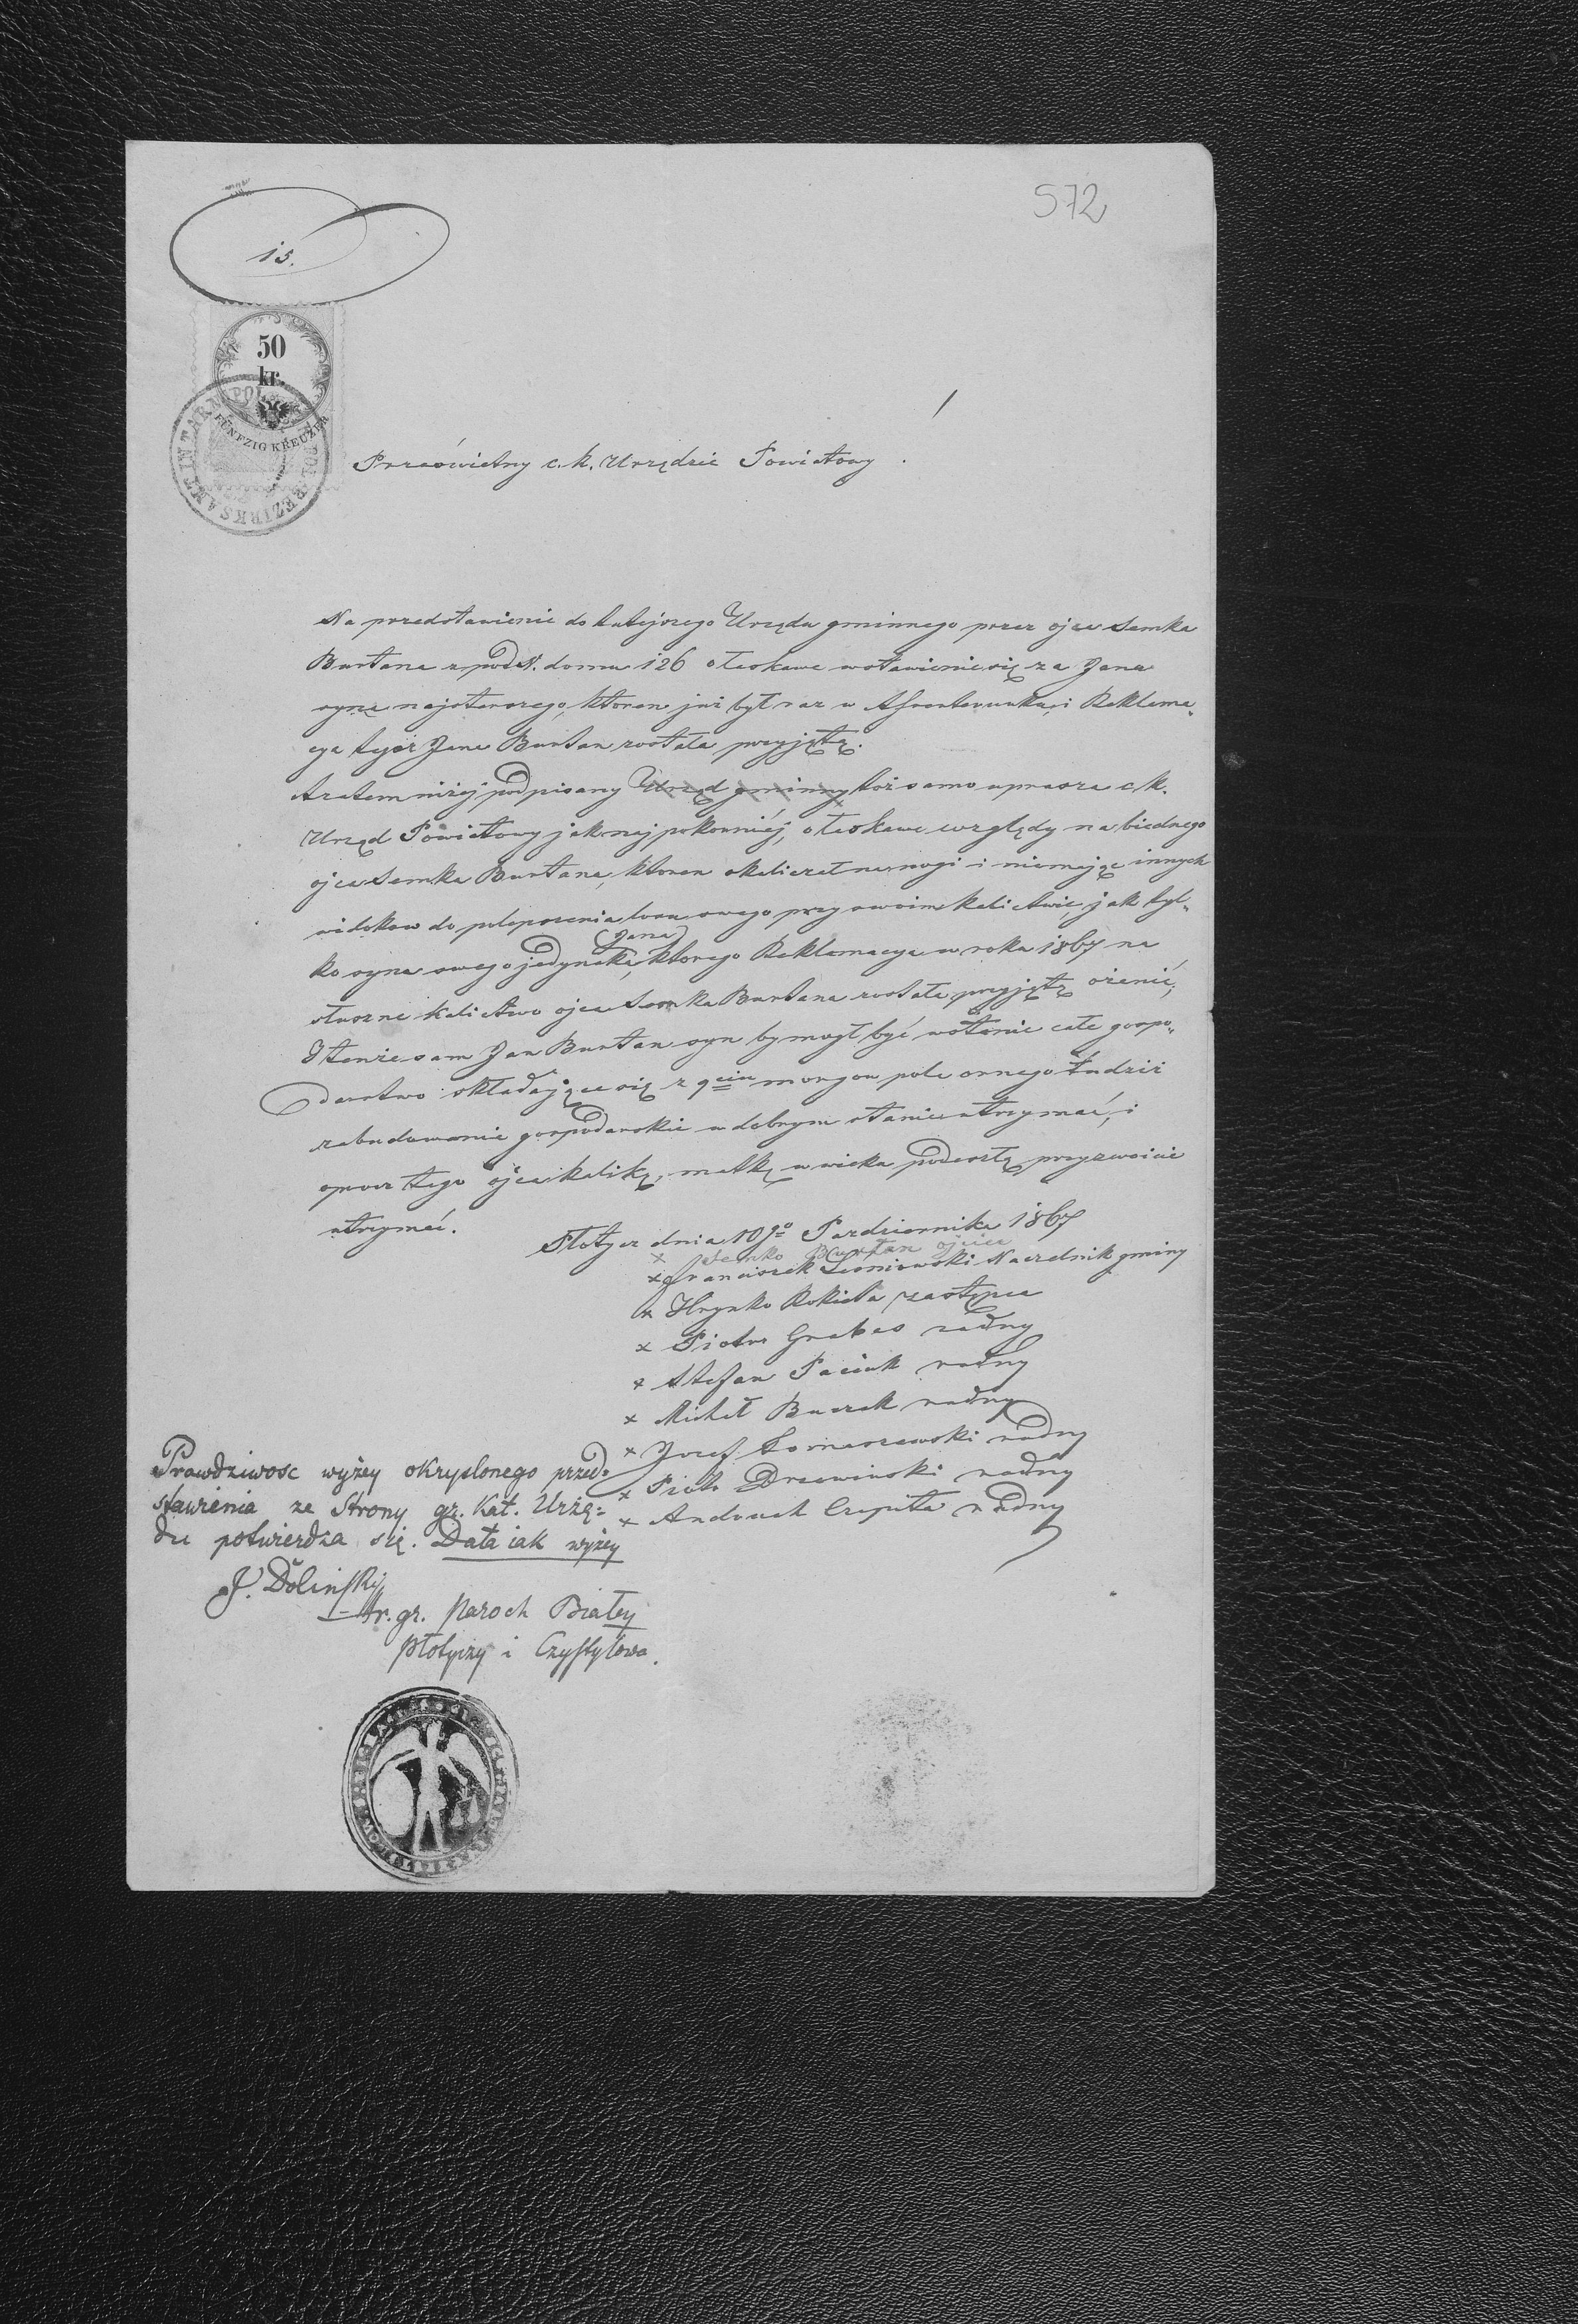 572
15.
50
kr.
FÜNFZIG KREUZER
BEZIRKSAMT IN TARNOPOL
Prześwietny c. k. Urzędzie Powiatowy
Na przedstawienie do tutejszego Urzędu gminnego przez ojca Semka
Burtana z pod N. domu 126 o łaskawe wstawienie się za Jana
syna najstarszego, ktoren już był raz w Asenterunku, i Reklama„
cya tegoż Jana Burtan została przyjętą.
Zatem niżej podpisany Urząd gminny toż samo uprasza c. k.
Urząd Powiatowy jak najpokorniéj, o łaskawe względy na biednego
ojca Semka Burtana, ktoren okaliczał na nogi i niemając innych
widokow do polepszenia losu swego przy swoim kalictwie, jak tyl„
(Jana)
ko syna swego jedynaka, ktorego Reklamacya w roku 1867 na
słuszne kalictwo ojca Semka Burtana została przyjętą ożenić,
I tenże sam Jan Burtan syn by mogł być wstanie całe gospo„
darstwo składające się z 9ciu morgow pola ornego tudzież
zabudowanie gospodarskie w dobrym stanie utrzymać, i
oprocz tego ojca kalikę, matkę w wieku podeszłą przyzwoicie
utrzymać.
Płotycz dnia 10go Pazdziernika 1867
x Semko Burtan ojciec
x Franciszek Lesniowski Naczelnik gminy
x Hrynko Rokieta zastępca
x Piotr Grabas radny
x Stefan Paciuk radny
x Michał Buczak radny
x Jozef Tomaszewski radny
x Piotr Drzewinski radny
x Andruch Czepita radny
Prawdziwosc wyżey okryslonego przed=
stawienia ze Strony gr. Kat. Urzę=
du potwierdza się. Data iak wyżey
J. Doliński
r. gr. Paroch Białey
Płotyczy i Czystyłowa.